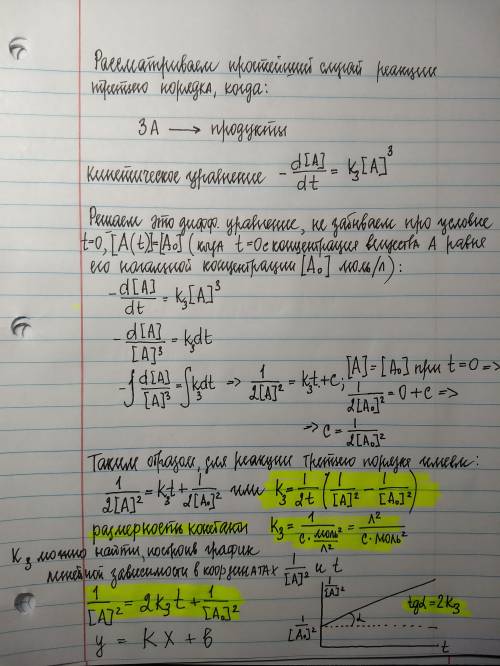 Рассматриваем простейший случай реакции
третьего порядка, когда:
3A ⟶ продукты
Кинетическое уравнение -d[A]/dt = k₃[A]³
Решаем это дифф. уравнение, не забываем про условие
t=0, [A(t)]=[A₀] (когда t=0 с концентрация вещества A равна
его начальной концентрации [A₀] моль/л):
-d[A]/dt = k₃[A]³
-d[A]/[A]³ = k₃dt
-∫d[A]/[A]³ = ∫k₃dt => 1/2[A]² = k₃t + c; [A]=[A₀] при t=0 =>
1/2[A₀]² = 0 + c =>
=> c = 1/2[A₀]²
Таким образом, для реакции третьего порядка имеем:
1/2[A]² = k₃t + 1/2[A₀]² или k₃ = 1/2t (1/[A]² - 1/[A₀]²)
размерность константы k₃ = 1/(с·моль²/л²) = л²/(с·моль²)
K₃ можно найти, построив график
линейной зависимости в координатах 1/[A]² и t
1/[A]² = 2k₃t + 1/[A₀]²
y = Kx + b
1/[A]²
tgα = 2k₃
α
1/[A₀]²
t